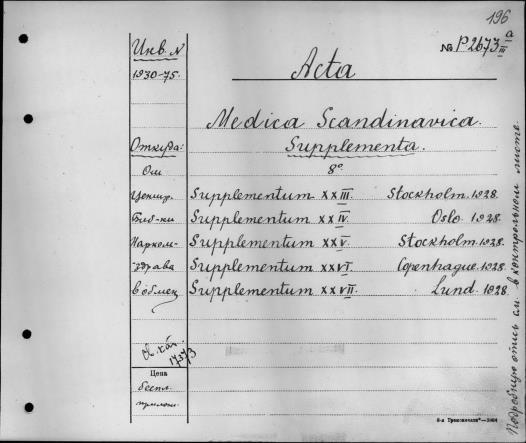 196
Инв. N
№ P2673 a III
1930-75.
Acta
Medica Scandinavica.
Откуда:
Supplementa.
От
8°
Центр. Supplementum XXIII. Stockholm. 1928.
Биб-ки Supplementum XXIV. Oslo. 1928.
Нарком- Supplementum XXV. Stockholm. 1928.
здрава Supplementum XXVI. Copenhague. 1928.
в обмен Supplementum XXVII. Lund. 1928.
17373
Цена
беспл.
Подробную опись см. в контрольном листе.